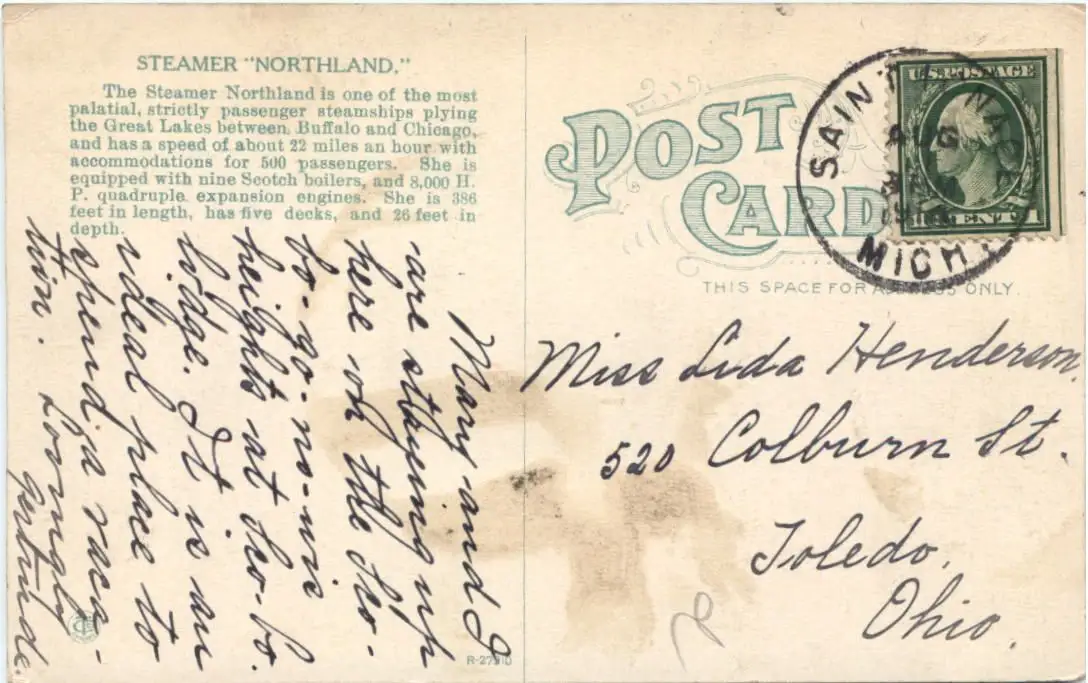 STEAMER "NORTHLAND."
The Steamer Northland is one of the most
palatial, strictly passenger steamships plying
the Great Lakes between Buffalo and Chicago,
and has a speed of about 22 miles an hour with
accommodations for 500 passengers. She is
equipped with nine Scotch boilers, and 8,000 H.
P. quadruple expansion engines. She is 386
feet in length, has five decks, and 26 feet in
depth.
Mary and I
are staying up
here on the Sho-
bo-go-no-wic
heights at Sho-bo.
lodge. It is an
ideal place to
spend a vaca-
tion. Lovingly
Gertrude.
R-27910
POST
CARD
SAINT IGNACE
AUG
MICH.
U.S. POSTAGE
1 CENT 1
THIS SPACE FOR ADDRESS ONLY.
Miss Lida Henderson,
520 Colburn St.
Toledo,
Ohio.